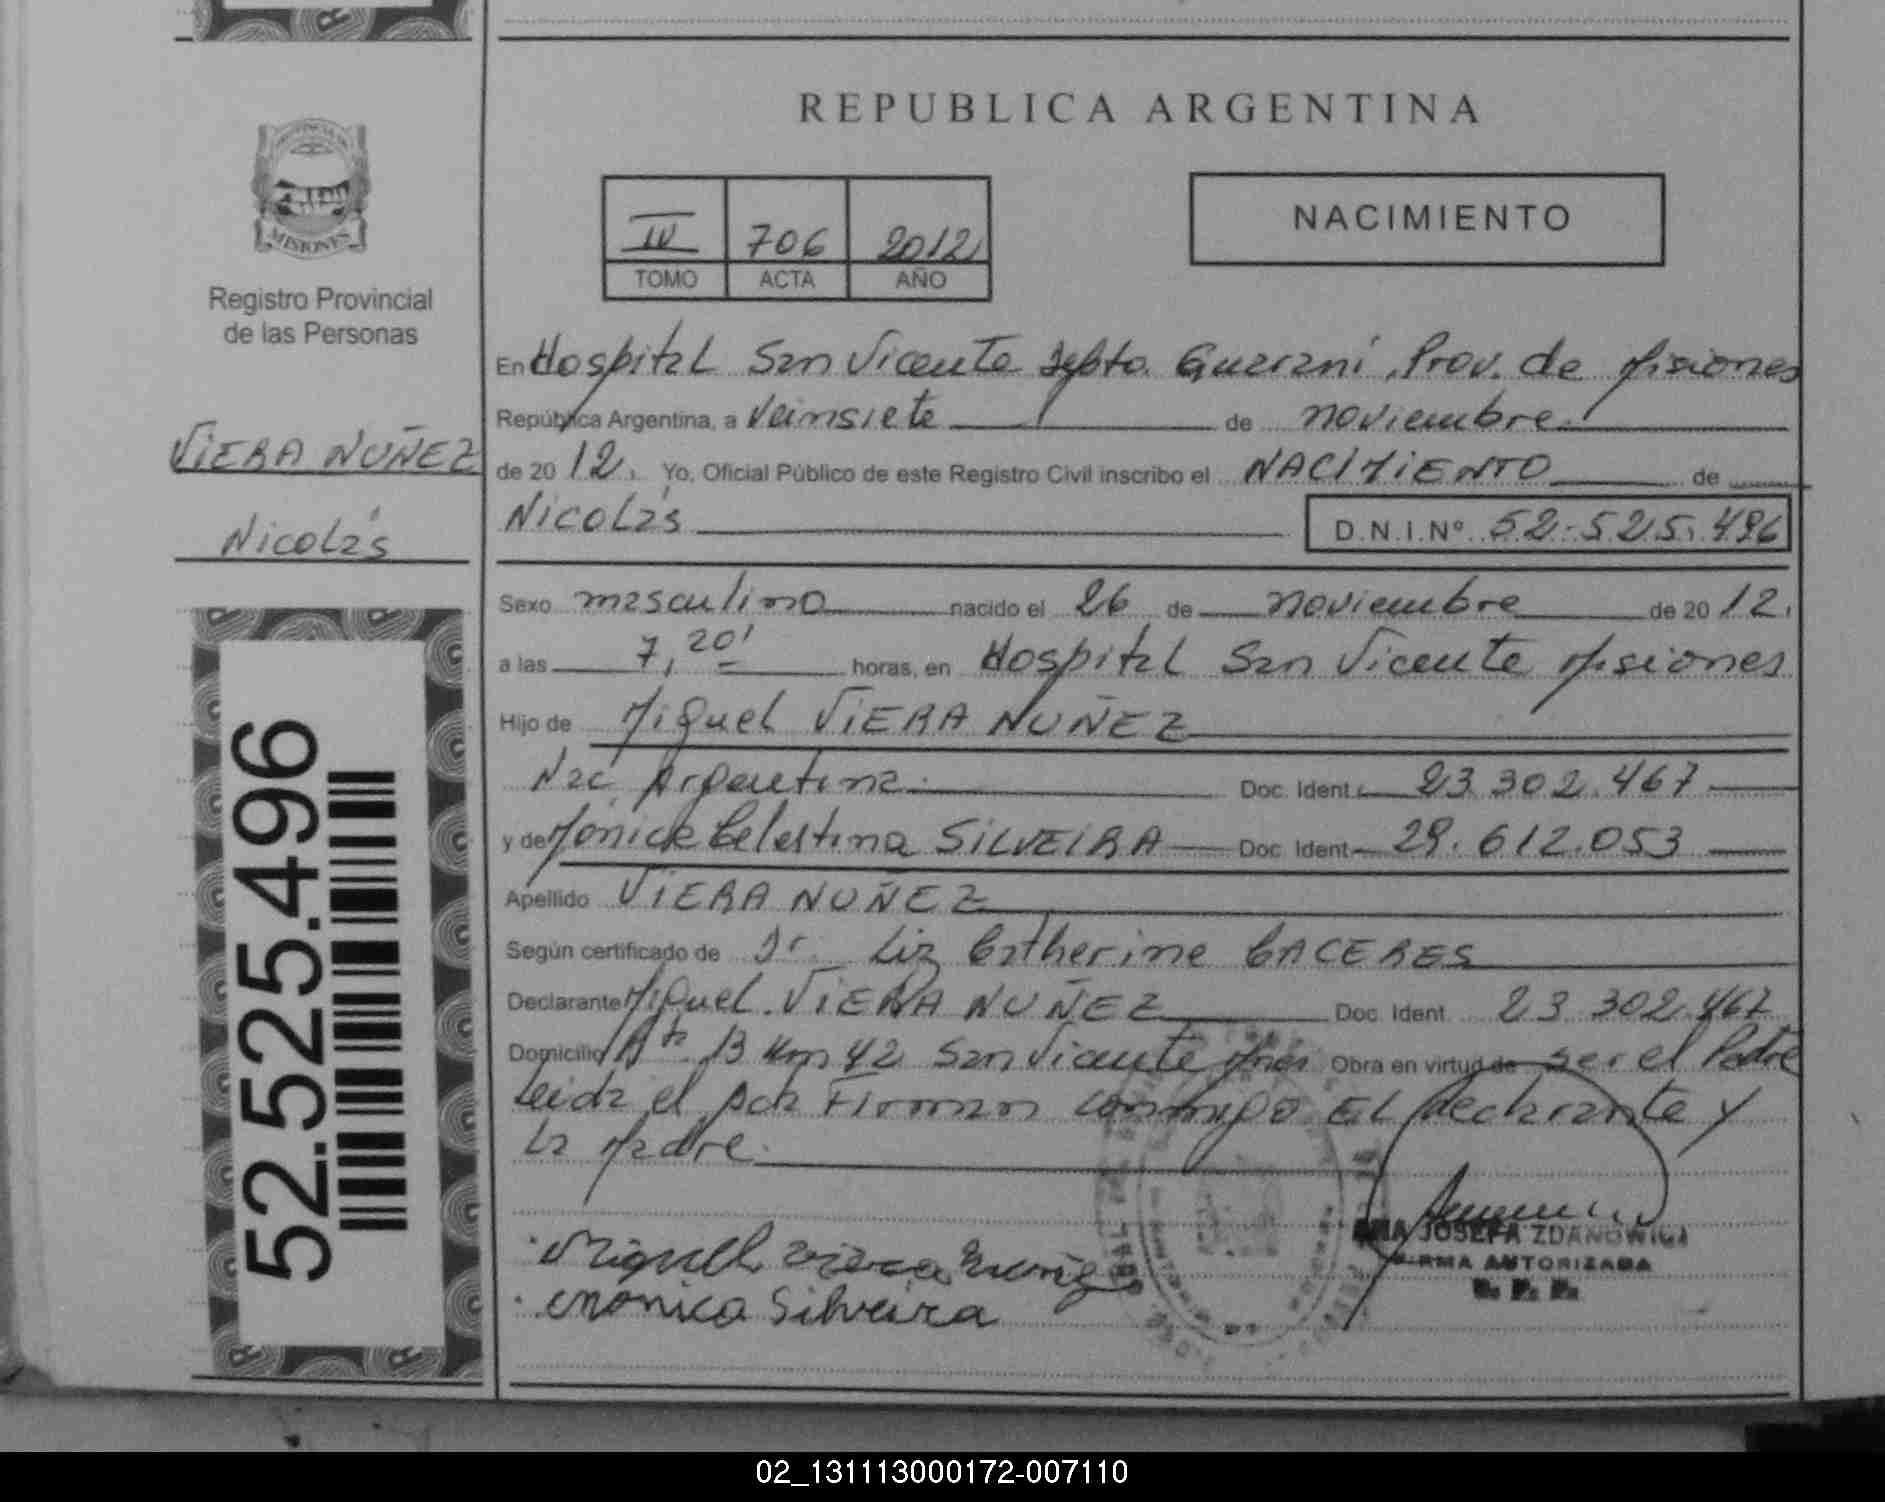 REPUBLICA ARGENTINA
MISIONES
Registro Provincial
de las Personas
VIERA NUÑEZ
Nicolás
52.525.496
IV 706 2012
TOMO ACTA AÑO
NACIMIENTO
En Hospital San Vicente Depto. Guaraní, Prov. de Misiones
República Argentina, a Veinsiete de noviembre
de 2012. Yo, Oficial Público de este Registro Civil inscribo el NACIMIENTO de
Nicolás D.N.I.Nº 52.525.496
Sexo masculino nacido el 26 de noviembre de 2012.
a las 7,20' horas, en Hospital San Vicente Misiones
Hijo de Miguel VIERA NUÑEZ
Nac Argentina. Doc. Ident. 23.302.467
y de Mónica Celestina SILVEIRA Doc. Ident 29.612.053
Apellido VIERA NUÑEZ
Según certificado de Dr. Liz Catherine CACERES
Declarante Miguel VIERA NUÑEZ Doc. Ident. 23.302.467
Domicilio Rta 13 Km 42 San Vicente Mnes Obra en virtud de ser el Padre
Leida el acta Firman conmigo EL declarante y
La Madre.
Miguel viera Nuñez
Monica Silveira
ANA JOSEFA ZDANOWICZ
FIRMA AUTORIZADA
R. P. P.
02_131113000172-007110